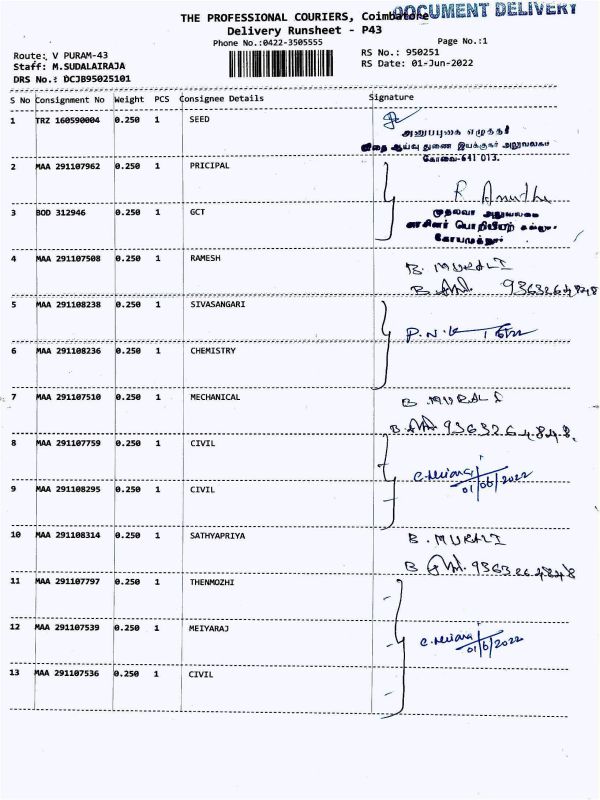 DOCUMENT DELIVERY
THE PROFESSIONAL COURIERS, Coimbatore
Delivery Runsheet - P43
Phone No.:0422-3505555
Page No.:1
Route: V PURAM-43
RS No.: 950251
Staff: M.SUDALAIRAJA
RS Date: 01-Jun-2022
DRS No.: DCJB95025101
S No Consignment No Weight PCS Consignee Details Signature
1 TRZ 160590004 0.250 1 SEED
அனுப்புகை எழுத்தர்
விதை ஆய்வு துணை இயக்குநர் அலுவலகம்
கோவை-641 013.
2 MAA 291107962 0.250 1 PRICIPAL
3 BOD 312946 0.250 1 GCT
4 MAA 291107508 0.250 1 RAMESH
B. MURALI
9363264848
5 MAA 291108238 0.250 1 SIVASANGARI
6 MAA 291108236 0.250 1 CHEMISTRY
7 MAA 291107510 0.250 1 MECHANICAL
B. MURALI
9363264848.
8 MAA 291107759 0.250 1 CIVIL
01/06/2022
9 MAA 291108295 0.250 1 CIVIL
10 MAA 291108314 0.250 1 SATHYAPRIYA
B. MURALI
9363264848
11 MAA 291107797 0.250 1 THENMOZHI
12 MAA 291107539 0.250 1 MEIYARAJ
01/6/2022
13 MAA 291107536 0.250 1 CIVIL